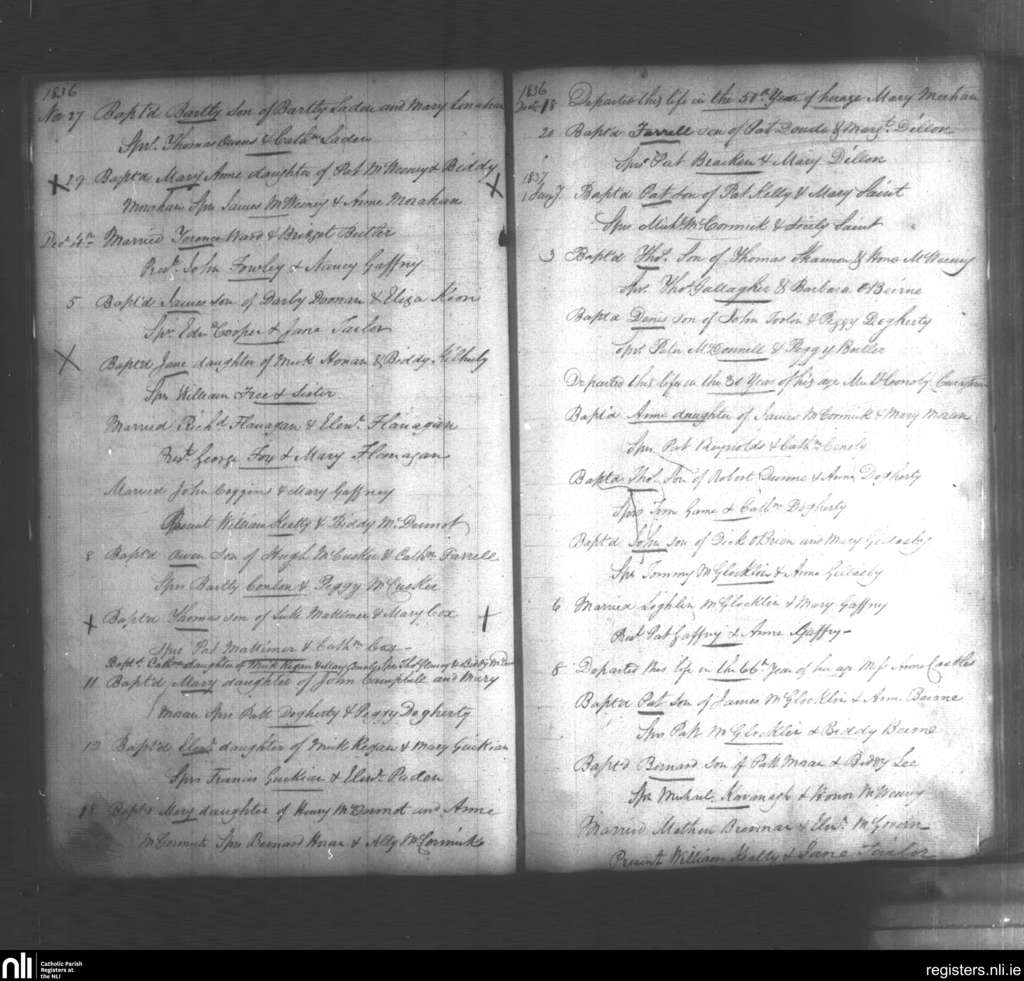 1836
Nov 27 Bapt'd Bartly son of Bartly Laden and Mary Lenahan
Sprs. Thomas Owens & Cathn Laden
29 Bapt'd Mary Anne daughter of Pat McWeeney & Biddy
Morahan Sprs James McWeeney & Anne Morahan
Decr 4th Married Terence Ward & Bridget Butler
John Fowley & Nancy Gaffny
5 Bapt'd James son of Darby Doonan & Eliza Keon
Sprs Edwd Cooper & Jane Tailor
Bapt'd Jane daughter of Mick Honan & Biddy
Sprs William Free & Sister
Married Richd Flanagan & Elenr Flanagan
George Fox & Mary Flanagan
Married John Coggins & Mary Gaffney
Present William Healy & Biddy McDermot
8 Bapt'd Owen son of Hugh McCuskee & Cathn Farrell
Sprs Bartly Conlon & Peggy McCuskee
Bapt'd Thomas son of Luke Mattimer & Mary Cox
Sprs Pat Mattimer & Cathn Cox
Bapt'd Cathn daughter of Mick Regan & Mary
11 Bapt'd Mary daughter of John Campbell and Mary
Moran Sprs Patt Dogherty & Peggy Dogherty
12 Bapt'd Elenr daughter of Mick Regan & Mary Guckian
Sprs Francis Guckian & Elenr Paden
18 Bapt'd Mary daughter of Henry McDermot and Anne
McCormick Sprs Bernard Horan & Ally McCormick
1836
Decr 18 Departed this life in the 50th Year of her age Mary Meehan
20 Bapt'd Farrell son of Pat Dowda & Margt Dillon
Sprs Pat Bracken & Mary Dillon
1837
1 Jany Bapt'd Pat son of Pat Kelly & Mary Saint
Sprs Michl McCormick & Saint
3 Bapt'd Thos. Son of Thomas Shannon & Hono McWeeny
Sprs. Thos Gallagher & Barbara O'Beirne
Bapt'd Denis son of John Toolin & Peggy Dogherty
Sprs. Peter McDonnell & Peggy Butler
Departed this life in the 30 Year of his age
Bapt'd Anne daughter of James McCormick & Mary Moran
Sprs Pat Reynolds & Cathn
Bapt'd Thos. Son of Robert Dunne & Anne Dogherty
Sprs Tim & Cathn Dogherty
Bapt'd John son of Dick O'Brien and Mary
Sprs Tommy McGlocklin & Anne
6 Married Loghlin McGlocklin & Mary Gaffny
Pat Gaffny & Anne Gaffny
8 Departed this life in the 66th Year of her age Mrs Anne Castles
Bapt'd Pat Son of James McGlocklin & Ann Beirne
Sprs Patt McGlocklin & Biddy Beirne
Bapt'd Bernard Son of Patt Moran & Biddy Lee
Sprs Michael Kavanagh & Honor McWeeny
Married Mathew Brennan & Elenr McGovern
Present William Healy & Jane Tailor
nli Catholic Parish
Registers at
the NLI
registers.nli.ie